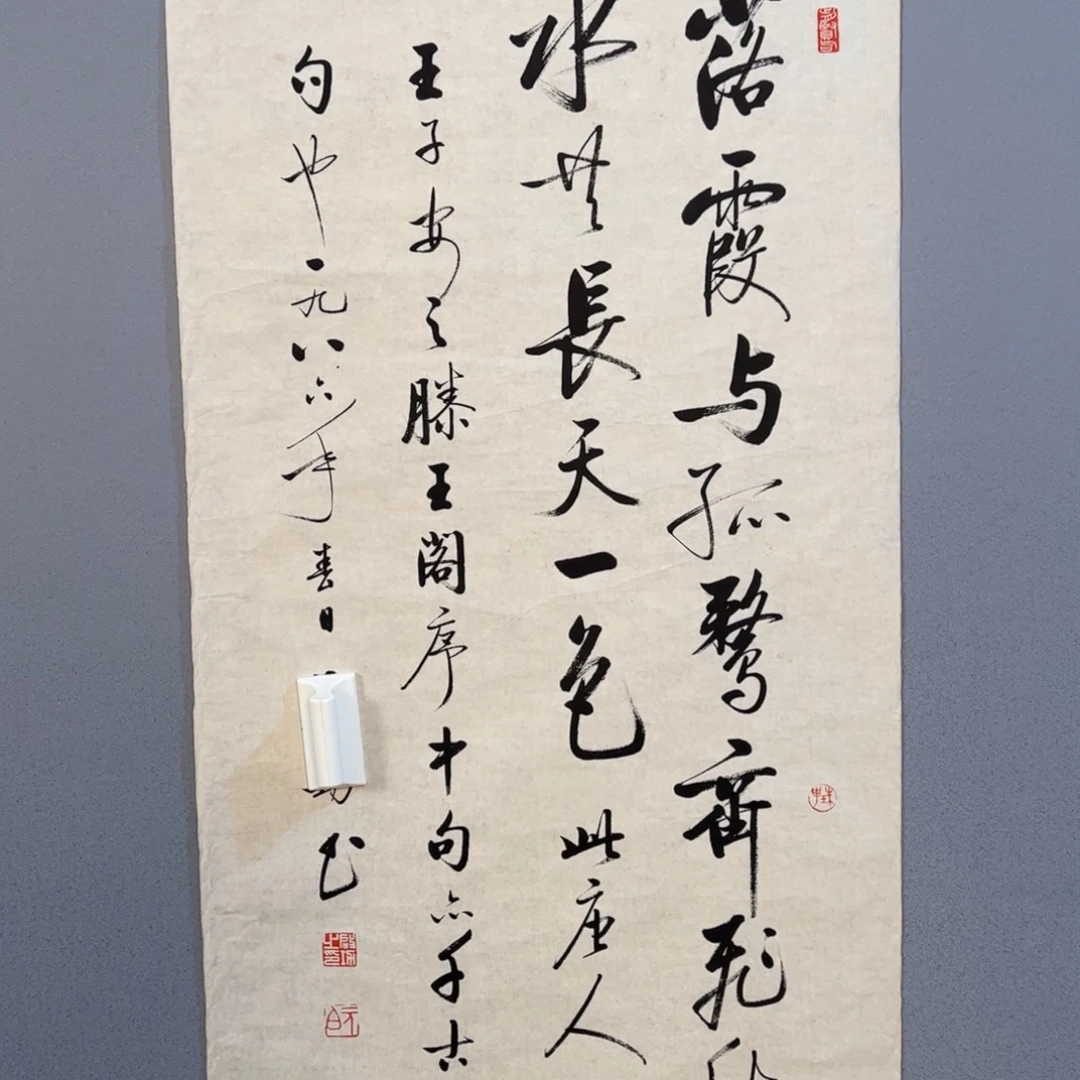 落霞与孤鹜齐飞秋
水共長天一色 此唐人
王子安之滕王阁序中句亦千古
句也一九八六年春日
书